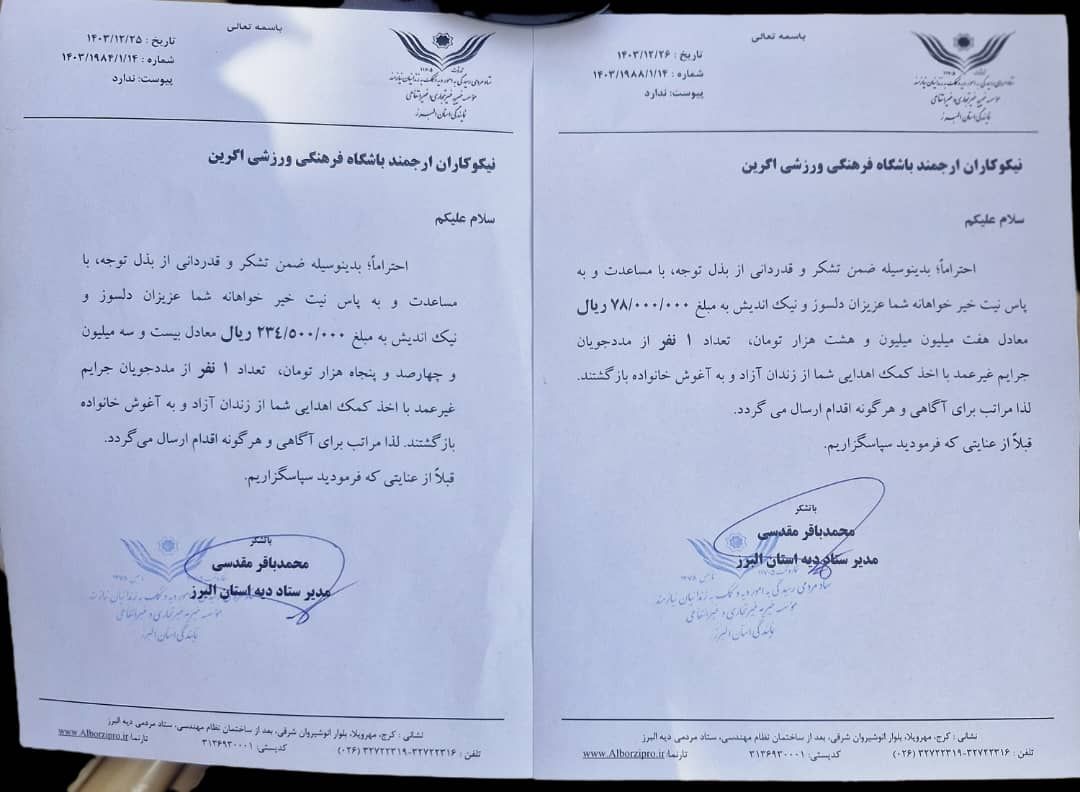 باسمه تعالی
تاریخ : ۱۴۰۳/۱۲/۲۶
شماره : ۱۴۰۳/۱۹۸۸/۱/۱۴
پیوست: ندارد
ستاد مردمی رسیدگی به امور دیه و کمک به زندانیان نیازمند
مؤسسه خیریه غیرتجاری و غیرانتفاعی
نمایندگی استان البرز
نیکوکاران ارجمند باشگاه فرهنگی ورزشی اگرین
سلام علیکم
احتراماً؛ بدینوسیله ضمن تشکر و قدردانی از بذل توجه، با مساعدت و به
پاس نیت خیر خواهانه شما عزیزان دلسوز و نیک اندیش به مبلغ ۷۸/۰۰۰/۰۰۰ ریال
معادل هفت میلیون میلیون و هشت هزار تومان، تعداد ۱ نفر از مددجویان
جرایم غیرعمد با اخذ کمک اهدایی شما از زندان آزاد و به آغوش خانواده بازگشتند.
لذا مراتب برای آگاهی و هرگونه اقدام ارسال می گردد.
قبلاً از عنایتی که فرمودید سپاسگزاریم.
باتشکر
محمدباقر مقدسی
مدیر ستاد دیه استان البرز
ستاد مردمی رسیدگی به امور دیه و کمک به زندانیان نیازمند
مؤسسه خیریه غیرتجاری و غیرانتفاعی
نمایندگی استان البرز
نشانی : کرج، مهرویلا، بلوار انوشیروان شرقی، بعد از ساختمان نظام مهندسی، ستاد مردمی دیه البرز
تلفن : ۳۲۷۲۲۳۱۶-۳۲۷۲۲۳۱۹ (۰۲۶) کدپستی: ۳۱۳۶۹۳۰۰۰۱ تارنما: www.Alborzipro.ir
باسمه تعالی
تاریخ : ۱۴۰۳/۱۲/۲۵
شماره : ۱۴۰۳/۱۹۸۴/۱/۱۴
پیوست: ندارد
ستاد مردمی رسیدگی به امور دیه و کمک به زندانیان نیازمند
مؤسسه خیریه غیرتجاری و غیرانتفاعی
نمایندگی استان البرز
نیکوکاران ارجمند باشگاه فرهنگی ورزشی اگرین
سلام علیکم
احتراماً؛ بدینوسیله ضمن تشکر و قدردانی از بذل توجه، با
مساعدت و به پاس نیت خیر خواهانه شما عزیزان دلسوز و
نیک اندیش به مبلغ ۲۳۴/۵۰۰/۰۰۰ ریال معادل بیست و سه میلیون
و چهارصد و پنجاه هزار تومان، تعداد ۱ نفر از مددجویان جرایم
غیرعمد با اخذ کمک اهدایی شما از زندان آزاد و به آغوش خانواده
بازگشتند. لذا مراتب برای آگاهی و هرگونه اقدام ارسال می گردد.
قبلاً از عنایتی که فرمودید سپاسگزاریم.
باتشکر
محمدباقر مقدسی
مدیر ستاد دیه استان البرز
مؤسسه خیریه غیرتجاری و غیرانتفاعی
نمایندگی استان البرز
نشانی : کرج، مهرویلا، بلوار انوشیروان شرقی، بعد از ساختمان نظام مهندسی، ستاد مردمی دیه البرز
تلفن : ۳۲۷۲۲۳۱۶-۳۲۷۲۲۳۱۹ (۰۲۶) کدپستی: ۳۱۳۶۹۳۰۰۰۱ تارنما: www.Alborzipro.ir